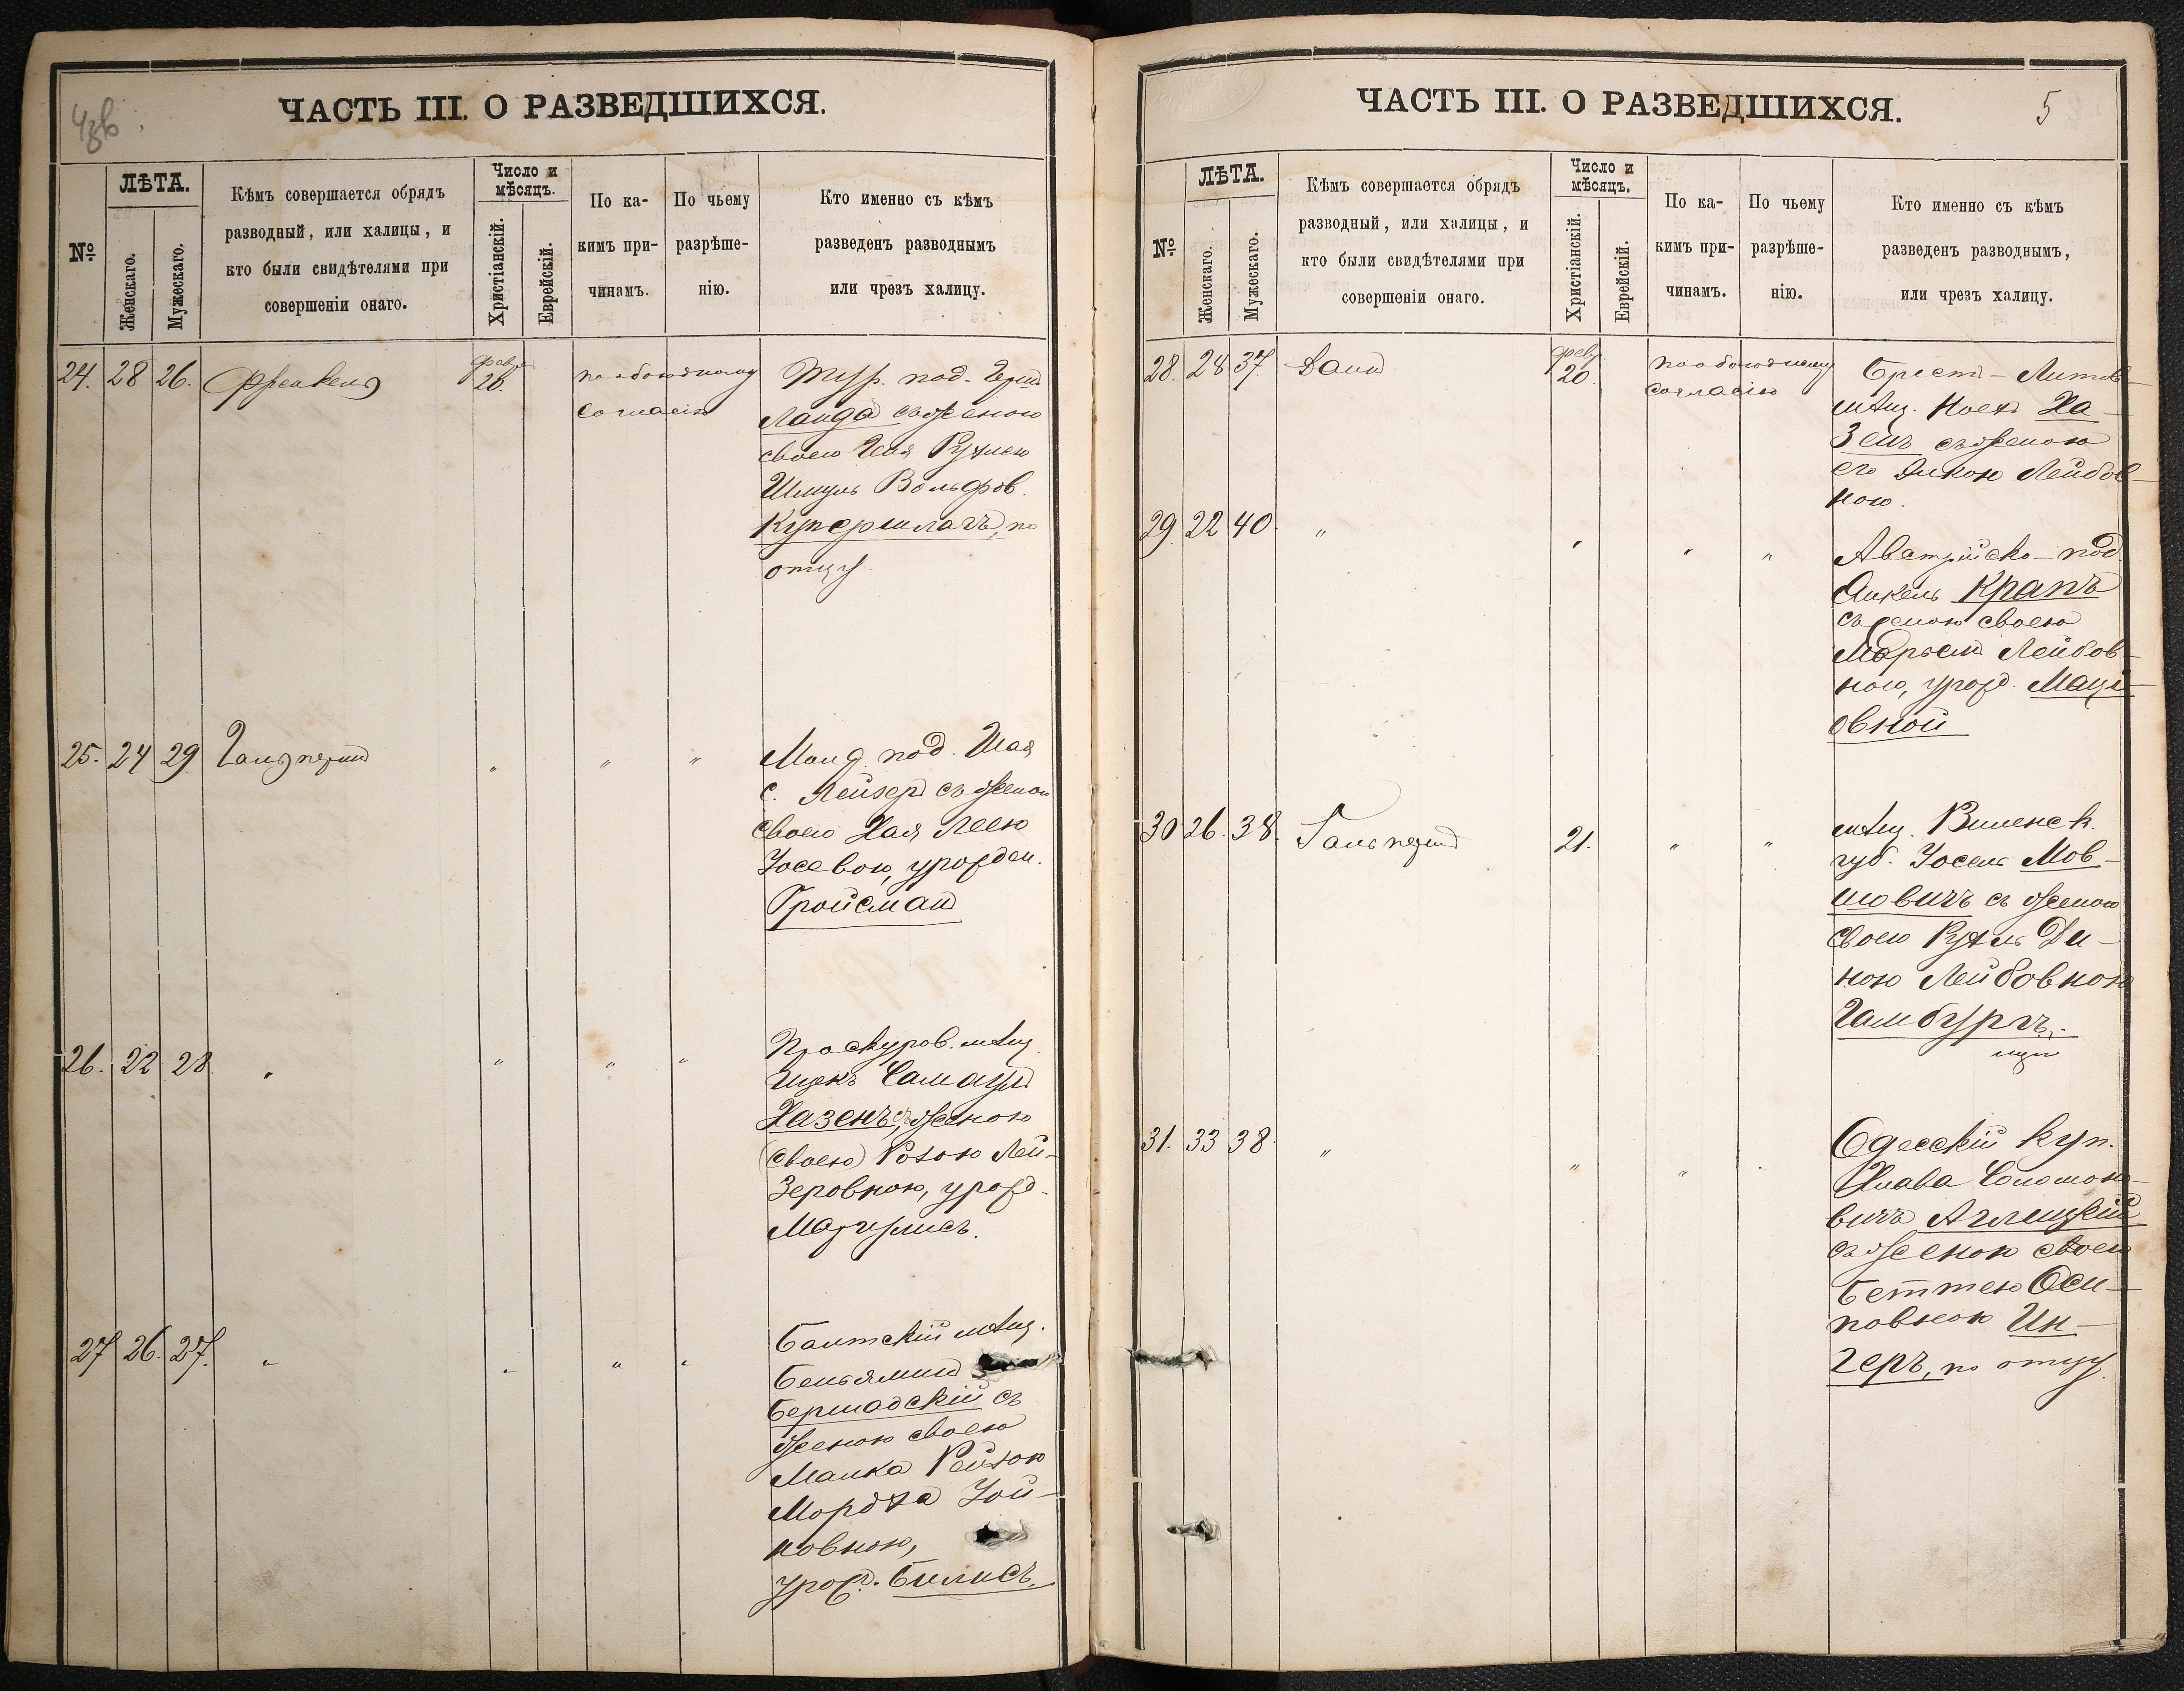 ЧАСТЬ III. О РАЗВЕДШИХСЯ.
№
ЛѢТА.
Женскаго.
Мужескаго.
Кѣмъ совершается обрядъ
разводный, или халицы, и
кто были свидѣтелями при
совершеніи онаго.
Число и
мѣсяцъ.
Христіанскій.
Еврейскій.
По ка-
кимъ при-
чинамъ.
По чьему
разрѣше-
нію.
Кто именно съ кѣмъ
разведенъ разводнымъ
или чрезъ халицу.
24. 28 26. Френкель
февр.
20.
по обоюдному
согласію
Тур. под. Герш
Ланда съ женою
своею Рухлею
Шмуль Вольфов.
Купершлагъ, по
отцу.
25. 24 29. Гальперинъ " " "
под. Шая
с. Лейзеръ съ женою
своею Хая Леею
Іосевою, урожден.
Гройсман
26. 22 28. " " " "
Проскуров. мѣщ.
Ицекъ Самаул
Хазенъ, съ женою
своею Розою Лей-
зеровною, урожд.
Маргулисъ.
27 26. 27. " " " "
Балтскій мѣщ.
Беньяминъ
Бершадскій съ
женою своею
Малка Рейзою
Мордха Іой-
новною,
урожд. Билисъ.
ЧАСТЬ III. О РАЗВЕДШИХСЯ.
5
№
ЛѢТА.
Женскаго.
Мужескаго.
Кѣмъ совершается обрядъ
разводный, или халицы, и
кто были свидѣтелями при
совершеніи онаго.
Число и
мѣсяцъ.
Христіанскій.
Еврейскій.
По ка-
кимъ при-
чинамъ.
По чьему
разрѣше-
нію.
Кто именно съ кѣмъ
разведенъ разводнымъ,
или чрезъ халицу.
28. 28 37.
февр.
20.
по обоюдному
согласію
Брест-Литов-
мѣщ. Ноехъ Ха-
зенъ съ женою
его Лейбов-
ною.
29. 22 40. " " " "
Австрійско-под.
Янкель Крапъ
съ женою своею
Марьем Лейбов-
ною, урожд.
овной
30 26. 38. Гальперинъ 21. " "
мѣщ. Виленск.
губ. Іосель Мов-
шовичъ съ женою
своею Рухль Ди-
ною Лейбовною
Гамбургъ.
31. 33 38. " " " "
Одесскій куп.
Соломоно-
вичъ Аглицкій
съ женою своею
Беттею Оси-
повною Ин-
геръ, по отцу.